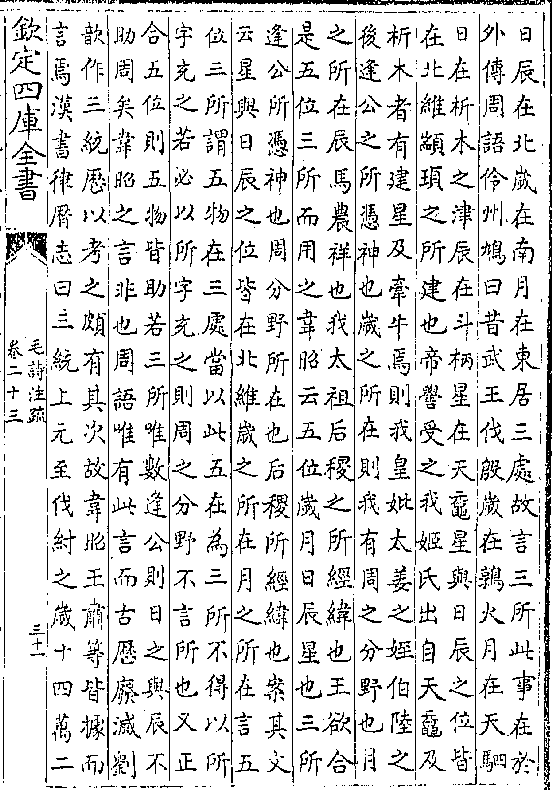 日辰在北歲在南月在東居三處故言三所此事在於
外傳周語伶州鳩曰昔武王伐殷歲在鶉火月在天駟
日在析木之津辰在斗柄星在天黿星與日辰之位皆
在北維顓頊之所建也帝嚳受之我姬氏出自天黿及
析木者有建星及牽牛焉則我皇妣太姜之姪伯陵之
後逢公之所憑神也歲之所在則我有周之分野也月
之所在辰馬農祥也我太祖后稷之所經緯也王欲合
是五位三所而用之韋昭云五位歲月日辰星也三所
逢公所憑神也周分野所在也后稷所經緯也案其文
云星與日辰之位皆在北維歲之所在月之所在言五
位三所謂五物在三處當以此五在為三所不得以所
字充之若必以所字充之則周之分野不言所也又正
合五位則五物皆助若三所唯數逢公則日之與辰不
助周矣韋昭之言非也周語唯有此言而古歷廢滅劉
歆作三統歷以考之頗有其次故韋昭王肅等皆據而
言焉漢書律曆志曰三統上元至伐紂之歲十四萬二
欽定四庫全書
毛詩注疏
卷二十三
三十一